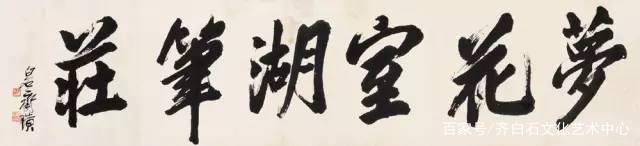 夢花室湖筆莊
齊璜
百家号/齐白石文化艺术中心